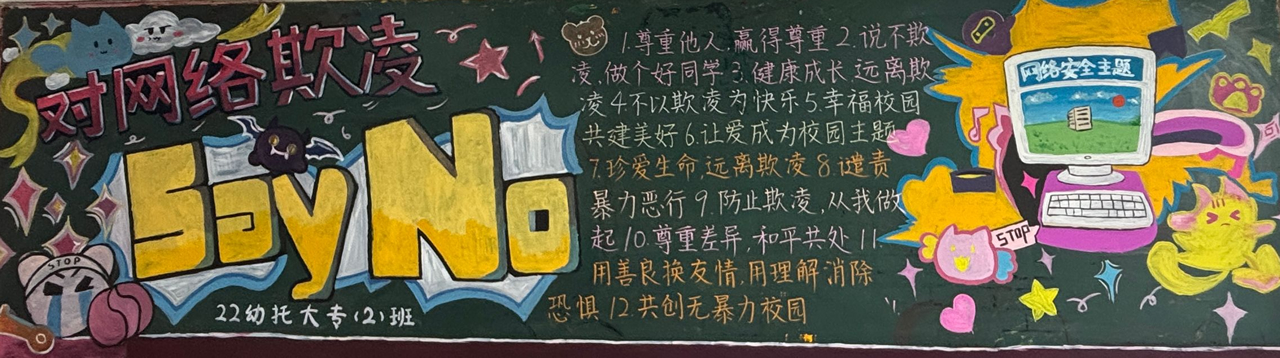 对网络欺凌
Say No
STOP
22幼托大专(2)班
1.尊重他人,赢得尊重 2.说不欺
凌,做个好同学 3.健康成长,远离欺
凌 4.不以欺凌为快乐 5.幸福校园
共建美好 6.让爱成为校园主题
7.珍爱生命,远离欺凌 8.谴责
暴力恶行 9.防止欺凌,从我做
起 10.尊重差异,和平共处 11.
用善良换友情,用理解消除
恐惧 12.共创无暴力校园
网络安全主题
STOP